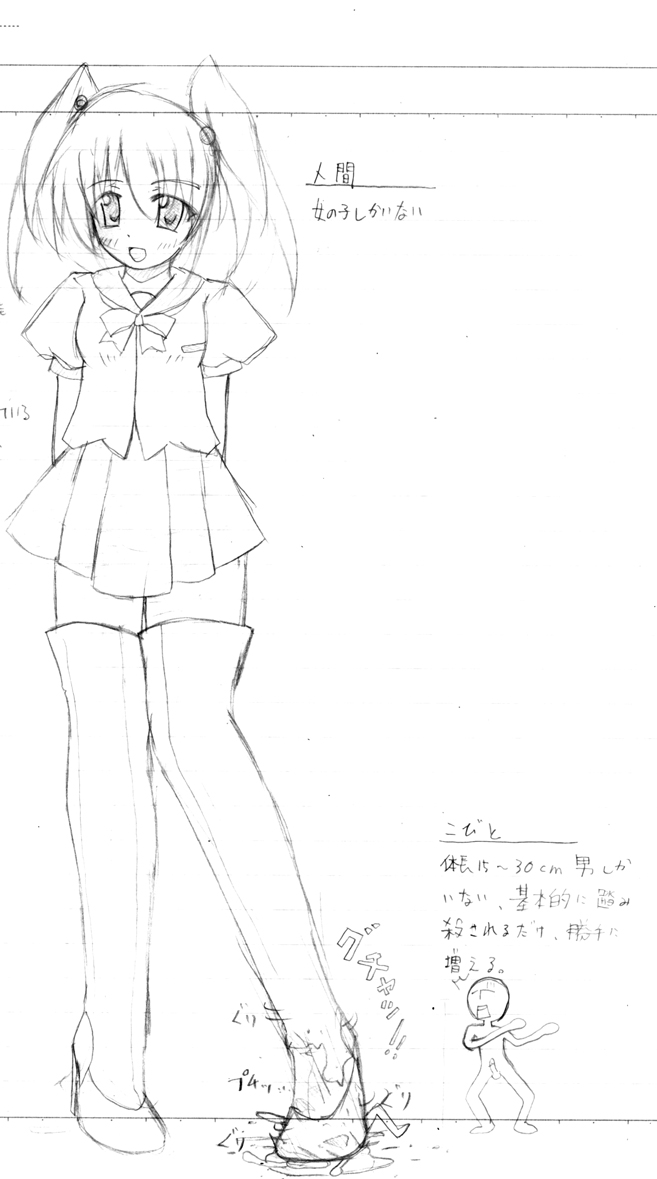 人間
女の子しかいない
こびと
体長15～30cm 男しか
いない、基本的に踏み
殺されるだけ、勝手に
増える。
グチャッ!!
ぐり
プチッ
ぐり
ぐり